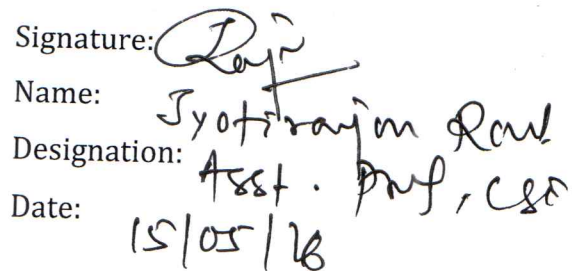 Signature:
Name: Jyotirajan
Designation: Asst. Prof, CSE
Date: 15/05/